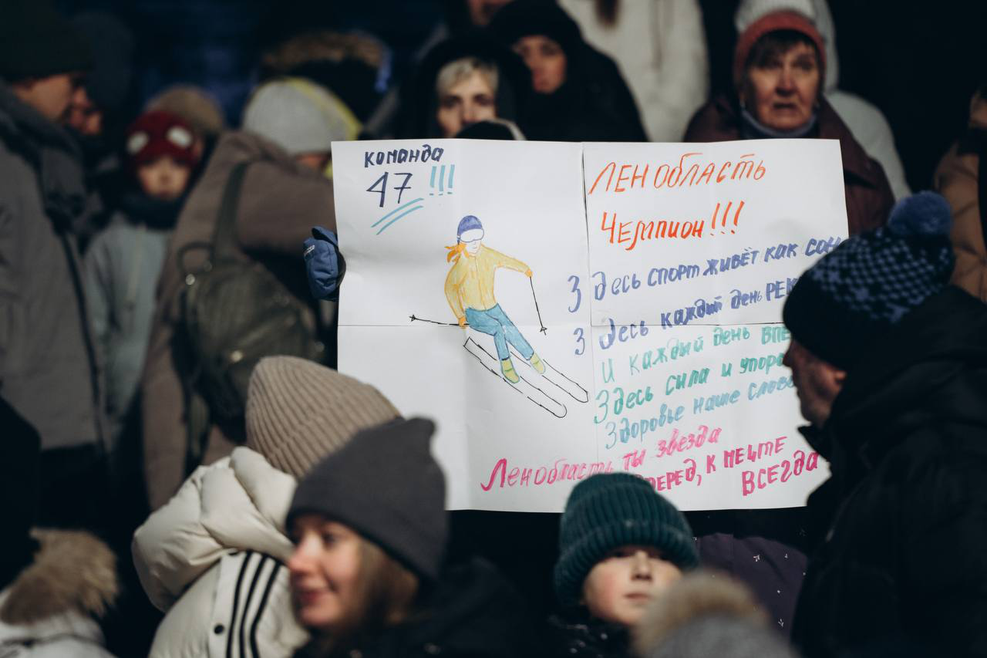 команда
47 !!!
ЛЕНОбласть
Чемпион!!!
Здесь спорт живёт как
Здесь каждый день
И каждый день
Здесь сила и
Здоровье наше
Ленобласть ты звезда
к мечте
всегда